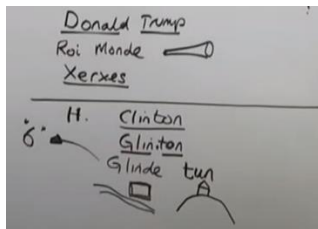 Donald Trump
Roi Monde
Xerxes
H. Clinton
"6"
Glinton
Glinde tun